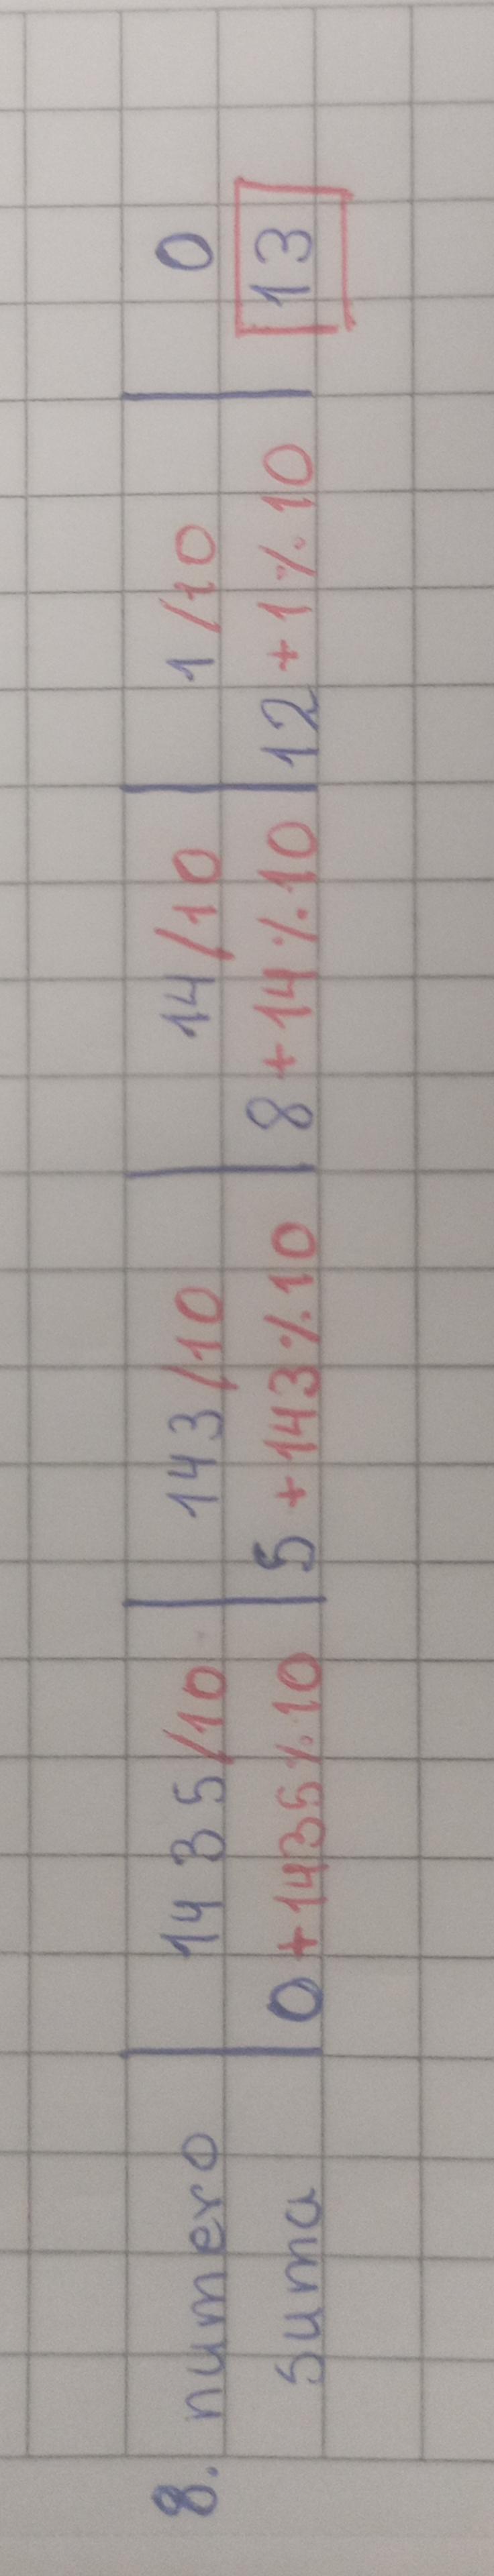 8. numero | 1435/10 | 143/10 | 14/10 | 1/10 | 0
suma | 0+1435%10 | 5+143%10 | 8+14%10 | 12+1%10 | 13